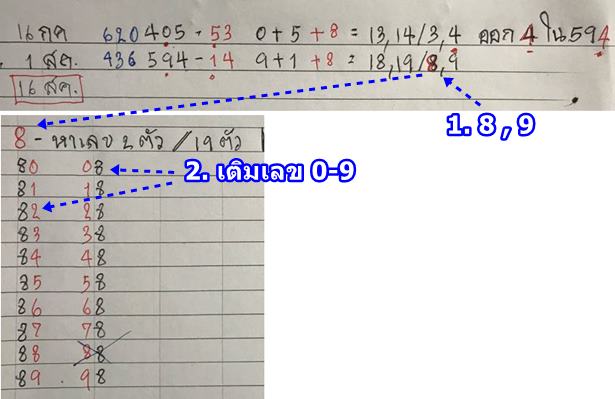 16 กค 620405 - 53 0+5+8 = 13,14/3,4 ออก 4 ใน 594
1 สค. 436594 - 14 9+1+8 = 18,19/8,9
16 สค.
1. 8 , 9
8 - หาเลข 2 ตัว / 19 ตัว
80 08
2. เติมเลข 0-9
81 18
82 28
83 38
84 48
85 58
86 68
87 78
88 88
89 . 98